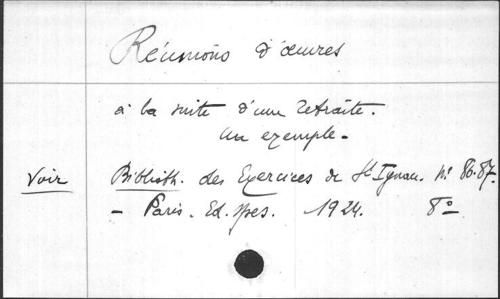 Réunions d'œuvres
à la suite d'une retraite.
un exemple -
Voir Biblioth. des Exercices de St Ignace. n° 86-87.
- Paris. Ed. Spes. 1924. 8°